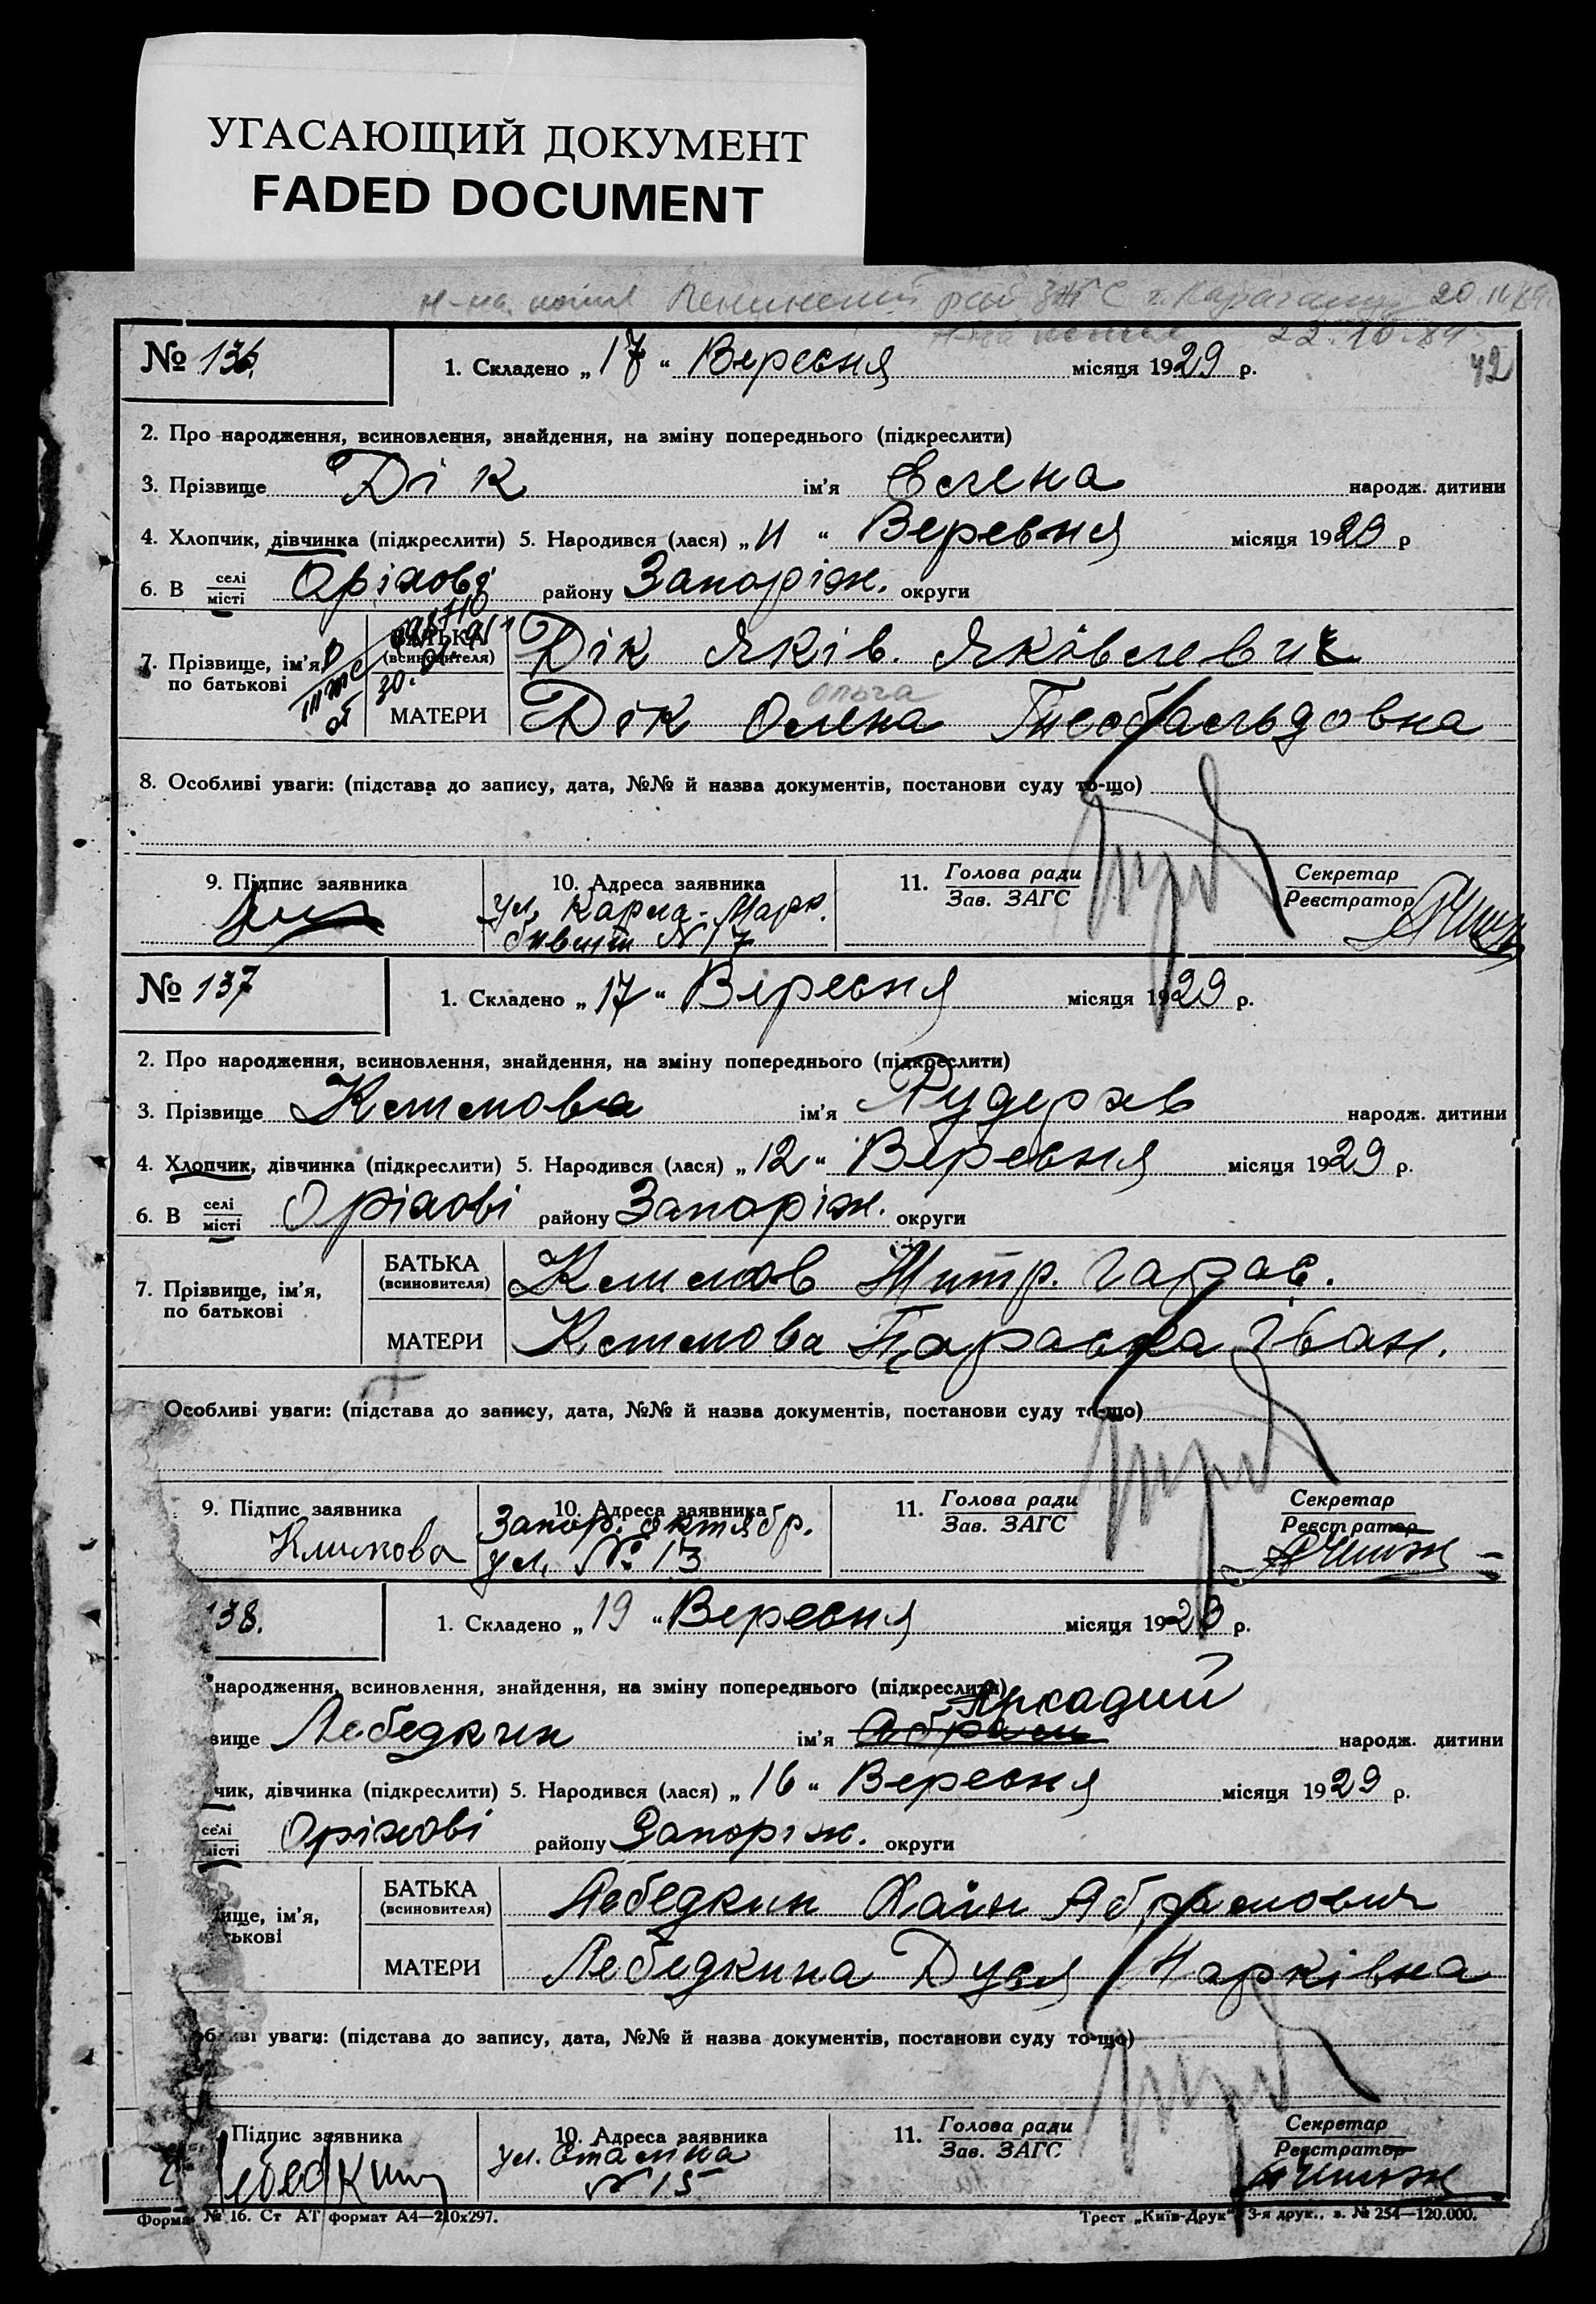 УГАСАЮЩИЙ ДОКУМЕНТ
FADED DOCUMENT
20.11.89
22.10.84
№ 136. 1. Складено „ 17 “ Вересня місяця 1929 р. 42
2. Про народження, всиновлення, знайдення, на зміну попереднього (підкреслити)
3. Прізвище Дік ім'я Єлена народж. дитини
4. Хлопчик, дівчинка (підкреслити) 5. Народився (лася) „ 11 “ Веревня місяця 1929 р
6. В селі місті Оріхові району Запоріж. округи
7. Прізвище, ім'я, по батькові
БАТЬКА (всиновителя) Дік Яків. Яківлевич
Ольга
МАТЕРИ Дік Олена Теобальдовна
8. Особливі уваги: (підстава до запису, дата, №№ й назва документів, постанови суду то-що)
9. Підпис заявника 10. Адреса заявника 11. Голова ради Зав. ЗАГС Секретар Реєстратор
ул. Карла-Марк.
№ 17
№ 137 1. Складено „ 17 “ Вересня місяця 1929 р.
2. Про народження, всиновлення, знайдення, на зміну попереднього (підкреслити)
3. Прізвище Климова ім'я народж. дитини
4. Хлопчик, дівчинка (підкреслити) 5. Народився (лася) „ 12 “ Вересня місяця 1929 р.
6. В селі місті Оріхові району Запоріж. округи
7. Прізвище, ім'я, по батькові
БАТЬКА (всиновителя) Климов Митр. Гарас.
МАТЕРИ Климова Параска Іван.
Особливі уваги: (підстава до запису, дата, №№ й назва документів, постанови суду то-що)
9. Підпис заявника 10. Адреса заявника 11. Голова ради Зав. ЗАГС Секретар Реєстратор
Климова Запор. октябр.
ул. № 13
138. 1. Складено „ 19 “ Вересня місяця 1929 р.
народження, всиновлення, знайдення, на зміну попереднього (підкреслити)
Аркадий
вище Лебедкин ім'я Абрам народж. дитини
чик, дівчинка (підкреслити) 5. Народився (лася) „ 16 “ Вересня місяця 1929 р.
селі місті Оріхові району Запоріж. округи
ище, ім'я, тькові
БАТЬКА (всиновителя) Лебедкин Хаїн Абрамович
МАТЕРИ Лебедкина Дуся Марківна
уваги: (підстава до запису, дата, №№ й назва документів, постанови суду то-що)
Підпис заявника 10. Адреса заявника 11. Голова ради Зав. ЗАГС Секретар Реєстратор
Лебедкин ул. Сталина
№ 15
Форма № 16. Ст АТ формат А4—210х297. Трест „Київ-Друк“ 3-я друк., з. № 254—120.000.